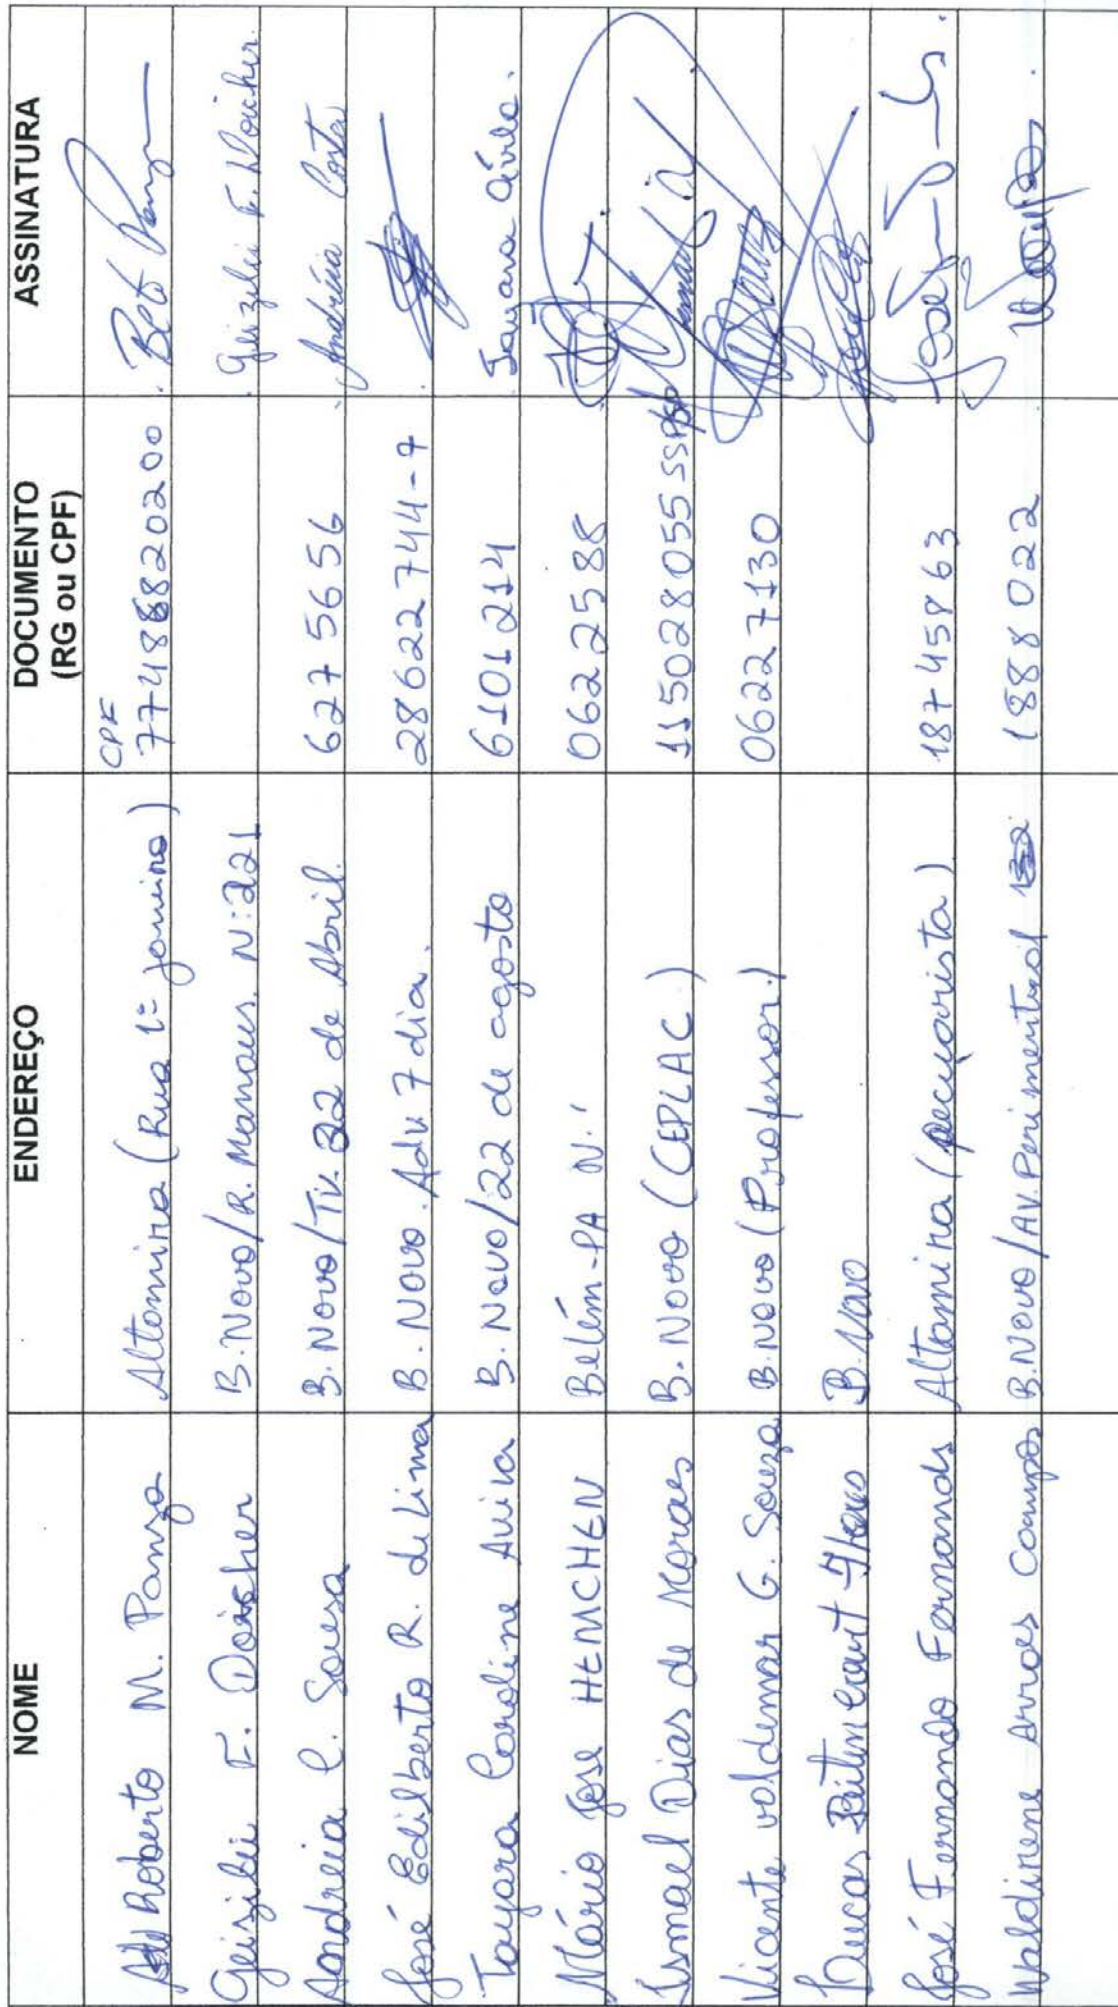 NOME ENDEREÇO DOCUMENTO (RG ou CPF) ASSINATURA
Roberto M. Panza Altamira (Rua 1º janeiro) CPF 77488820200 Beto Panza
Geizili F. Doisher B. Novo/R. Manaus. N:221 Geizili F. Doisher
Andreia C. Sousa B. Novo/Tv. 22 de Abril. 6275656 Andréia Costa
José Edilberto R. de Lima B. Novo. Adv. 7 dia. 28622744-7
Tayara Caroline Avila B. Novo/22 de agosto 6101214 Tayara Avila.
Mário José HENCHEN Belém-PA N. 0622588
Ismael Dias de Moraes B. Novo (CEPLAC.) 115028055 SSP/SP
Vicente valdemar G. Souza B. novo (Professor.) 06227130
Lucas B. Novo
José Fernando Fernands Altamira (pecuarista) 18745863 José
Waldirene Arraes Campos B. Novo/AV. Perimentral 1888022